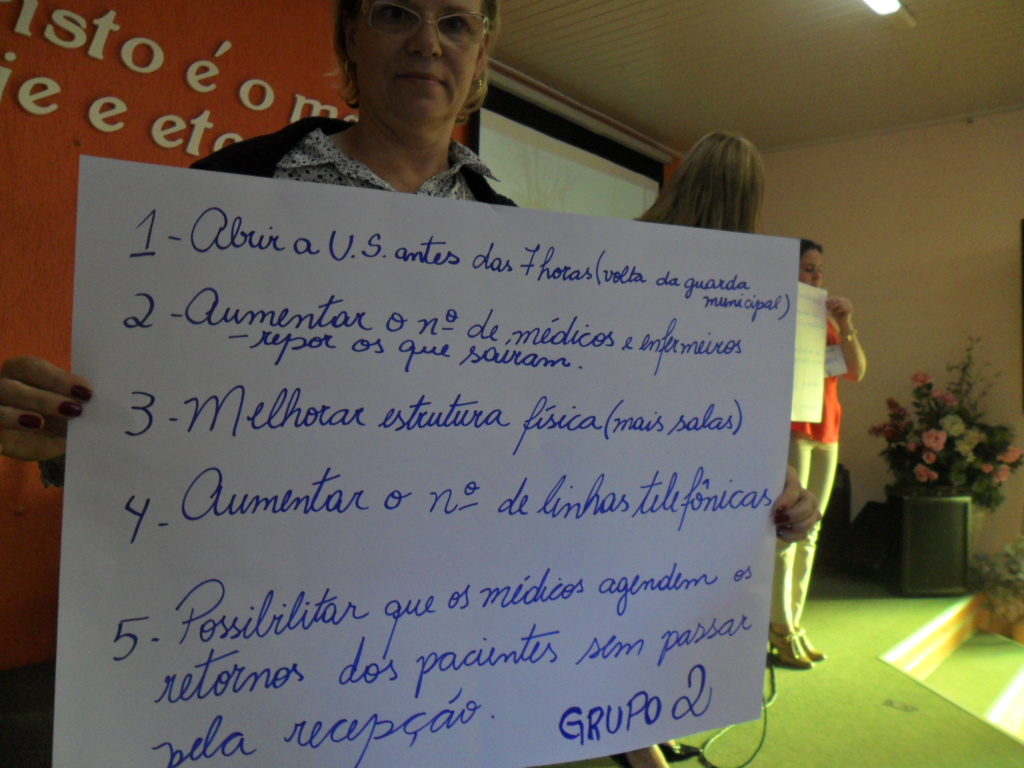 isto é o m
je e ete
1 - Abrir a U.S. antes das 7 horas (volta da guarda
municipal)
2 - Aumentar o nº de médicos e enfermeiros
- repor os que saíram.
3 - Melhorar estrutura física (mais salas)
4 - Aumentar o nº de linhas telefônicas
5 - Possibilitar que os médicos agendem os
retornos dos pacientes sem passar
pela recepção.
GRUPO 2